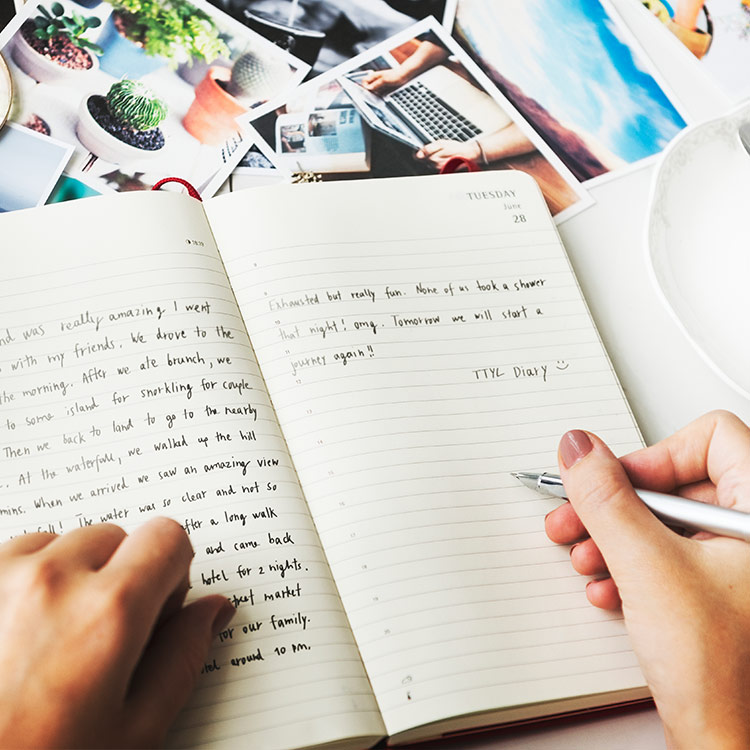 nd was really amazing I went
with my friends. We drove to the
the morning. After we ate brunch, we
to some island for snorkling for couple
Then we back to land to go to the nearby
At the waterfall, we walked up the hill
mins. When we arrived we saw an amazing view
fall! The water was so clear and not so
after a long walk
and came back
hotel for 2 nights.
street market
for our family.
around 10 pm.
TUESDAY
June
28
Exhausted but really fun. None of us took a shower
that night! omg. Tomorrow we will start a
journey again!!
TTYL Diary